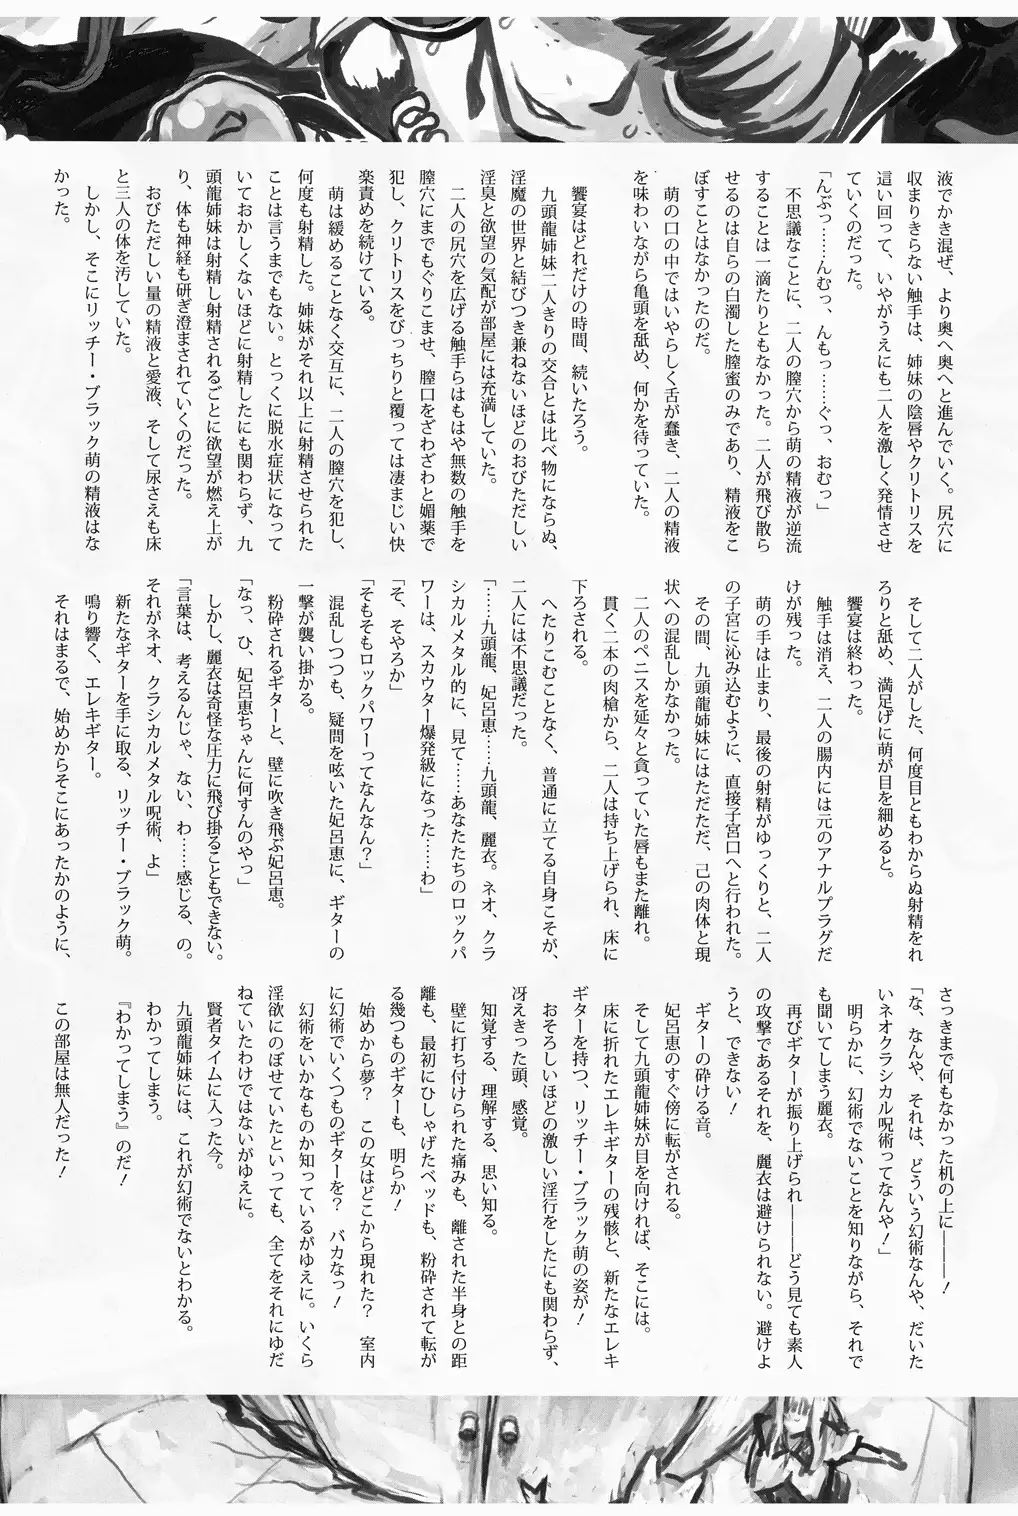 液でかき混ぜ、より奥へ奥へと進んでいく。尻穴に
収まりきらない触手は、姉妹の陰唇やクリトリスを
這い回って、いやがうえにも二人を激しく発情させ
ていくのだった。
「んぶっ……んむっ、んもっ……ぐっ、おむっ」
不思議なことに、二人の膣穴から萌の精液が逆流
することは一滴たりともなかった。二人が飛び散ら
せるのは自らの白濁した膣蜜のみであり、精液をこ
ぼすことはなかったのだ。
萌の口の中ではいやらしく舌が蠢き、二人の精液
を味わいながら亀頭を舐め、何かを待っていた。
饗宴はどれだけの時間、続いたろう。
九頭龍姉妹二人きりの交合とは比べ物にならぬ、
淫魔の世界と結びつき兼ねないほどのおびただしい
淫臭と欲望の気配が部屋には充満していた。
二人の尻穴を広げる触手らはもはや無数の触手を
膣穴にまでもぐりこませ、膣口をざわざわと媚薬で
犯し、クリトリスをびっちりと覆っては凄まじい快
楽責めを続けている。
萌は緩めることなく交互に、二人の膣穴を犯し、
何度も射精した。姉妹がそれ以上に射精させられた
ことは言うまでもない。とっくに脱水症状になって
いておかしくないほどに射精したにも関わらず、九
頭龍姉妹は射精し射精されるごとに欲望が燃え上が
り、体も神経も研ぎ澄まされていくのだった。
おびただしい量の精液と愛液、そして尿さえも床
と三人の体を汚していた。
しかし、そこにリッチー・ブラック萌の精液はな
かった。
そして二人がした、何度目ともわからぬ射精をれ
ろりと舐め、満足げに萌が目を細めると。
饗宴は終わった。
触手は消え、二人の腸内には元のアナルプラグだ
けが残った。
萌の手は止まり、最後の射精がゆっくりと、二人
の子宮に沁み込むように、直接子宮口へと行われた。
その間、九頭龍姉妹にはただただ、己の肉体と現
状への混乱しかなかった。
二人のペニスを延々と貪っていた唇もまた離れ。
貫く二本の肉槍から、二人は持ち上げられ、床に
下ろされる。
へたりこむことなく、普通に立てる自身こそが、
二人には不思議だった。
「……九頭龍、妃呂恵……九頭龍、麗衣。ネオ、クラ
シカルメタル的に、見て……あなたたちのロックパ
ワーは、スカウター爆発級になった……わ」
「そ、そやろか」
「そもそもロックパワーってなんなん？」
混乱しつつも、疑問を呟いた妃呂恵に、ギターの
一撃が襲い掛かる。
粉砕されるギターと、壁に吹き飛ぶ妃呂恵。
「なっ、ひ、妃呂恵ちゃんに何すんのやっ」
しかし、麗衣は奇怪な圧力に飛び掛ることもできない。
「言葉は、考えるんじゃ、ない、わ……感じる、の。
それがネオ、クラシカルメタル呪術、よ」
新たなギターを手に取る、リッチー・ブラック萌。
鳴り響く、エレキギター。
それはまるで、始めからそこにあったかのように、
さっきまで何もなかった机の上に———！
「な、なんや、それは、どういう幻術なんや、だいた
いネオクラシカル呪術ってなんや！」
明らかに、幻術でないことを知りながら、それで
も聞いてしまう麗衣。
再びギターが振り上げられ———どう見ても素人
の攻撃であるそれを、麗衣は避けられない。避けよ
うと、できない！
ギターの砕ける音。
妃呂恵のすぐ傍に転がされる。
そして九頭龍姉妹が目を向ければ、そこには。
床に折れたエレキギターの残骸と、新たなエレキ
ギターを持つ、リッチー・ブラック萌の姿が！
おそろしいほどの激しい淫行をしたにも関わらず、
冴えきった頭、感覚。
知覚する、理解する、思い知る。
壁に打ち付けられた痛みも、離された半身との距
離も、最初にひしゃげたベッドも、粉砕されて転が
る幾つものギターも、明らか！
始めから夢？　この女はどこから現れた？　室内
に幻術でいくつものギターを？　バカなっ！
幻術をいかなものか知っているがゆえに。いくら
淫欲にのぼせていたといっても、全てをそれにゆだ
ねていたわけではないがゆえに。
賢者タイムに入った今。
九頭龍姉妹には、これが幻術でないとわかる。
わかってしまう。
『わかってしまう』のだ！
この部屋は無人だった！